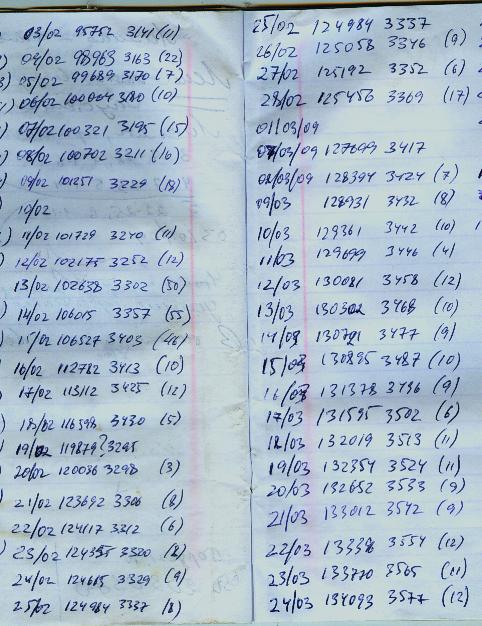 03/02 95752 3141 (11)
04/02 98963 3163 (22)
05/02 99689 3170 (7)
06/02 100004 3180 (10)
07/02 100321 3195 (15)
08/02 100702 3211 (16)
09/02 101251 3229 (18)
10/02
11/02 101729 3240 (11)
12/02 102175 3252 (12)
13/02 102638 3302 (50)
14/02 106015 3357 (55)
15/02 106527 3403 (46)
16/02 112782 3413 (10)
17/02 113112 3425 (12)
18/02 116598 3430 (5)
19/02 119879? 3295
20/02 120036 3298 (3)
21/02 123692 3306 (8)
22/02 124117 3312 (6)
23/02 124355 3320 (8)
24/02 124615 3329 (9)
25/02 124984 3337 (8)
25/02 124984 3337
26/02 125058 3346 (9)
27/02 125192 3352 (6)
28/02 125456 3369 (17)
01/03/09
07/03/09 127699 3417
08/03/09 128394 3424 (7)
09/03 128931 3432 (8)
10/03 129361 3442 (10)
11/03 129699 3446 (4)
12/03 130081 3458 (12)
13/03 130302 3468 (10)
14/03 130791 3477 (9)
15/03 130895 3487 (10)
16/03 131378 3496 (9)
17/03 131595 3502 (6)
18/03 132019 3513 (11)
19/03 132354 3524 (11)
20/03 132652 3533 (9)
21/03 133012 3542 (9)
22/03 3554 (12)
23/03 133770 3565 (11)
24/03 134093 3577 (12)